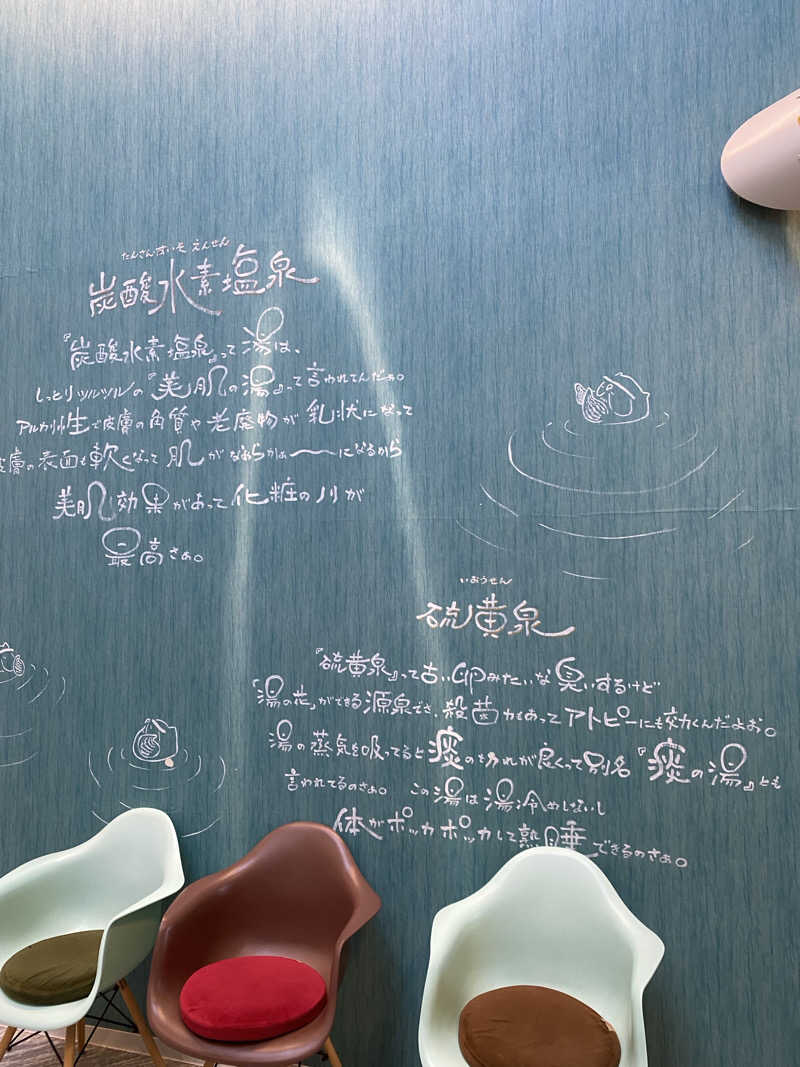 たんさんすいそ えんせん
炭酸水素塩泉
『炭酸水素塩泉』って湯は、
しっとりツルツルの『美肌の湯』って言われてんだぁ。
アルカリ性で皮膚の角質や老廃物が乳状になって
皮膚の表面も軟くなって肌がなめらかぁ〜になるから
美肌効果があって化粧のノリが
最高さぁ。
いおうせん
硫黄泉
『硫黄泉』って古い卵みたいな臭いするけど
「湯の花」ができる源泉でさ、殺菌力もあってアトピーにも効くんだよぉ。
湯の蒸気を吸ってると痰の切れが良くって別名『痰の湯』とも
言われてるのさぁ。 この湯は湯冷めしないし
体がポッカポッカして熟睡できるのさぁ。